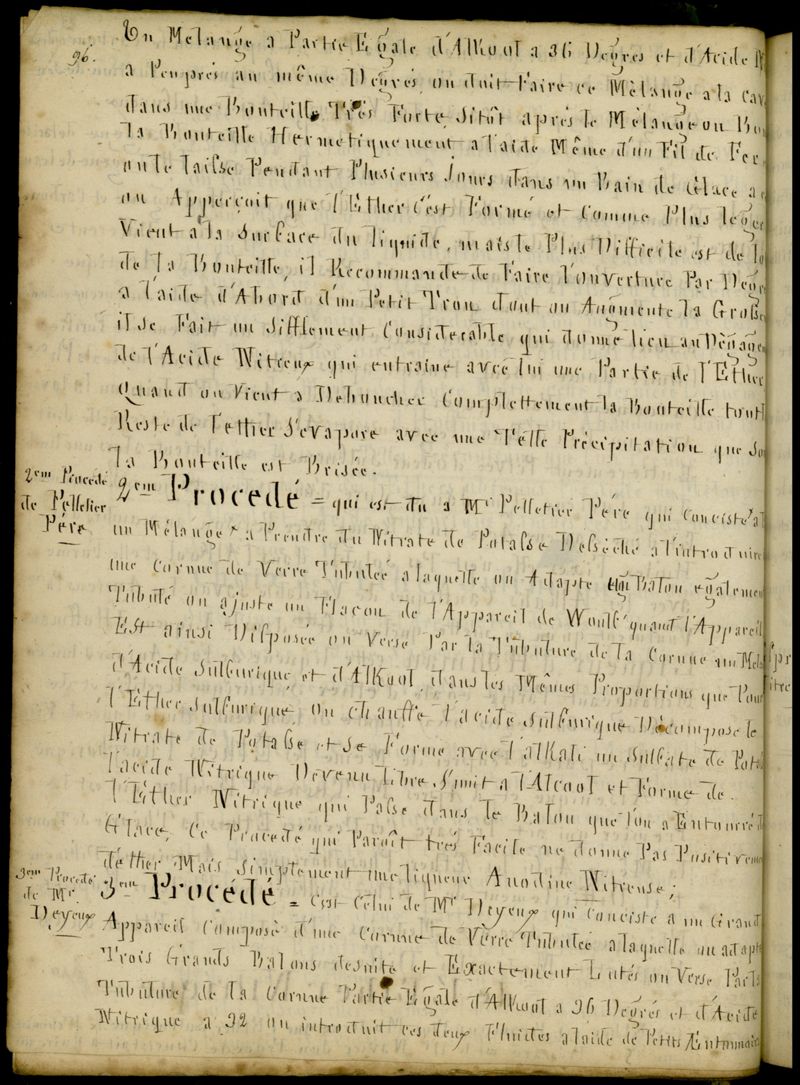 96.
Un Mélange a Partie Egale d'Alkool a 36 Degrés et d'Acide
a Peuprés au même Degrés, on doit Faire ce Mélange a la Cav
dans une Bouteille Trés Forte, sitôt aprés le Mélange on Bou
la Bouteille Hermetiquement a l'aide Même d'un Fil de Fer,
on le laisse Pendant Plusieurs Jours dans un Bain de Glace
on Apperçoit que l'Ether s'est Formé et comme Plus leger
Vient a la Surface du liquide, mais le Plus Difficile est de
de la Bouteille, il Recommande de Faire l'ouverture Par Degré
a l'aide d'Abord d'un Petit Trou dont on Augmente la Grosse
il se Fait un Sifflement Considerable qui donne lieu au Dégage
de l'Acide Nitreux qui entraine avec lui une Partie de l'Ether
Quand on Vient a Deboucher Complettement la Bouteille tout
Reste de l'ether s'evapore avec une Telle Précipitation que
la Bouteille est Brisée.
2em Procede de Pelletier Pére
2em Procedé = qui est du a Mr Pelletier Pére qui Conciste a
un Mélange a Prendre du Nitrate de Potasse Deséché a l'introduire
une Cornue de Verre Tubulée a laquelle on Adapte un Balon egalemen
Tubulé on ajuste un Flacon de l'Appareil de Woulf, quand l'Appareil
Est ainsi Disposée on Verse Par la Tubulure de la Cornue un Mela
d'Acide Sulfurique et d'Alkool dans les Mêmes Proportions que Pour
l'Ether Sulfurique on chauffe l'acide Sulfurique Décompose le
Nitrate de Potasse et se Forme avec l'alkali un Sulfate de Pota
l'acide Nitrique Devenu Libre s'unit a l'Alcool et Forme de
l'Ether Nitrique qui Passe dans le Balon que l'on a Entourré d
Glace, Ce Procedé qui Paroît trés Facile ne donne Pas Positiveme
d'ether Mais Simplement une liqueur Anodine Nitreuse;
3em Procede de Mr Deyeux
3em Procedé = C'est Celui de Mr Deyeux qui Conciste a un Grand
Appareil Composé d'une Cornue de Verre Tubulée a laquelle on adapte
Trois Grands Balons desuite et Exactement Lutés on Verse Par la
Tubulure de la Cornue Partie Egale d'Alkool a 36 Degrés et d'Acide
Nitrique a 32 on introduit ces deux Fluides a l'aide de Petits Entonnoirs